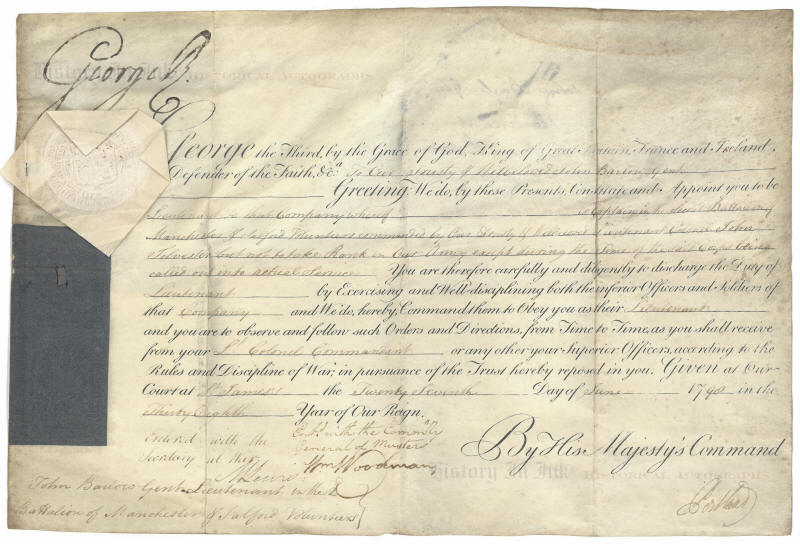 George R
George the Third, by the Grace of God, King of Great Britain, France and Ireland,
Defender of the Faith, &c.a To Our Trusty & Welbeloved John Barlow Gent.
Greeting: We do, by these Presents, Constitute and Appoint you to be
Lieutenant in that Company whereof is Captain in the Second Battalion of
Manchester & Salford Volunteers commanded by Our Trusty & Welbeloved Lieutenant Colonel John
Silvester but not to take Rank in Our Army except during the Time of the said Corps being
called out into actual Service. You are therefore carefully and diligently to discharge the Duty of
Lieutenant by Exercising and Well-disciplining both the inferior Officers and Soldiers of
that Company and We do, hereby, Command them to Obey you as their Lieutenant
and you are to observe and follow such Orders and Directions, from Time to Time, as you shall receive
from your Lt. Colonel Commandant or any other your Superior Officers, according to the
Rules and Discipline of War, in pursuance of the Trust hereby reposed in you. Given at Our
Court at St. James's the Twenty Seventh Day of June 1798 in the
Thirty Eighth Year of Our Reign.
Entered with the
Secretary at War
M Lewis
Entd. with the Commry
General of Musters
Wm Woodman
By His Majesty's Command
Portland
John Barlow Gent. Lieutenant in the 2d
Battalion of Manchester & Salford Volunteers
History In Ink HISTORICAL AUTOGRAPHS
History In Ink HISTORICAL AUTOGRAPHS